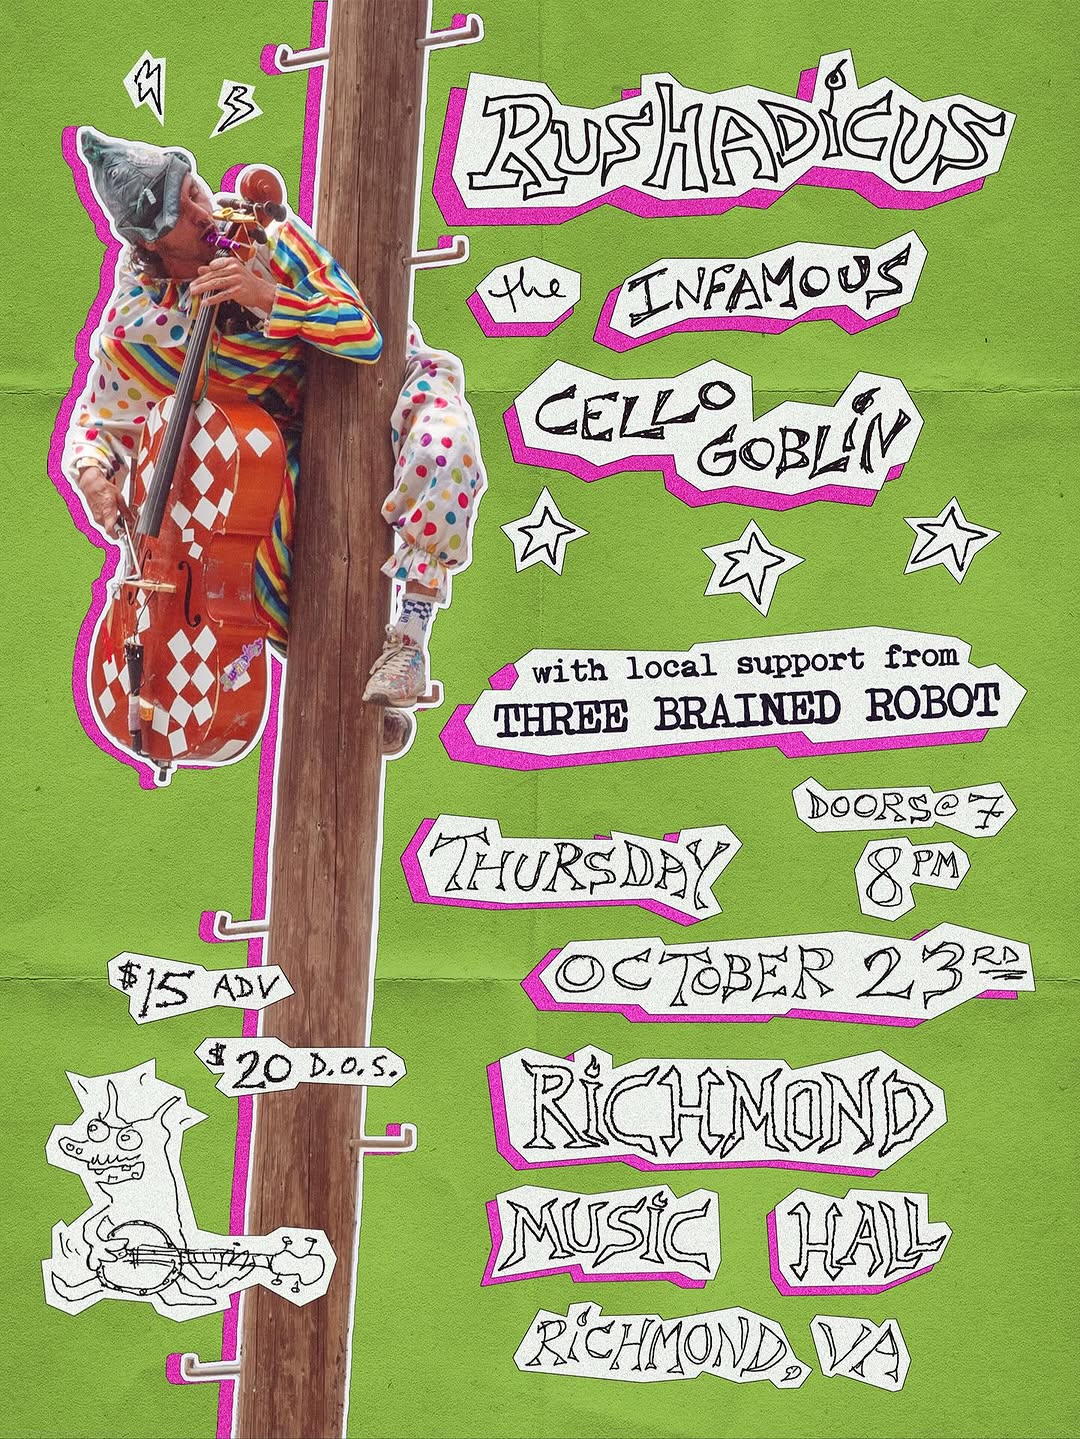 RUSHADiCUS
the INFAMOUS
CELLO
GOBLiN
with local support from
THREE BRAINED ROBOT
DOORS@7
THURSDAY
8PM
OCTOBER 23RD
$15 ADV
$20 D.O.S.
RiCHMOND
MUSiC HALL
RiCHMOND, VA